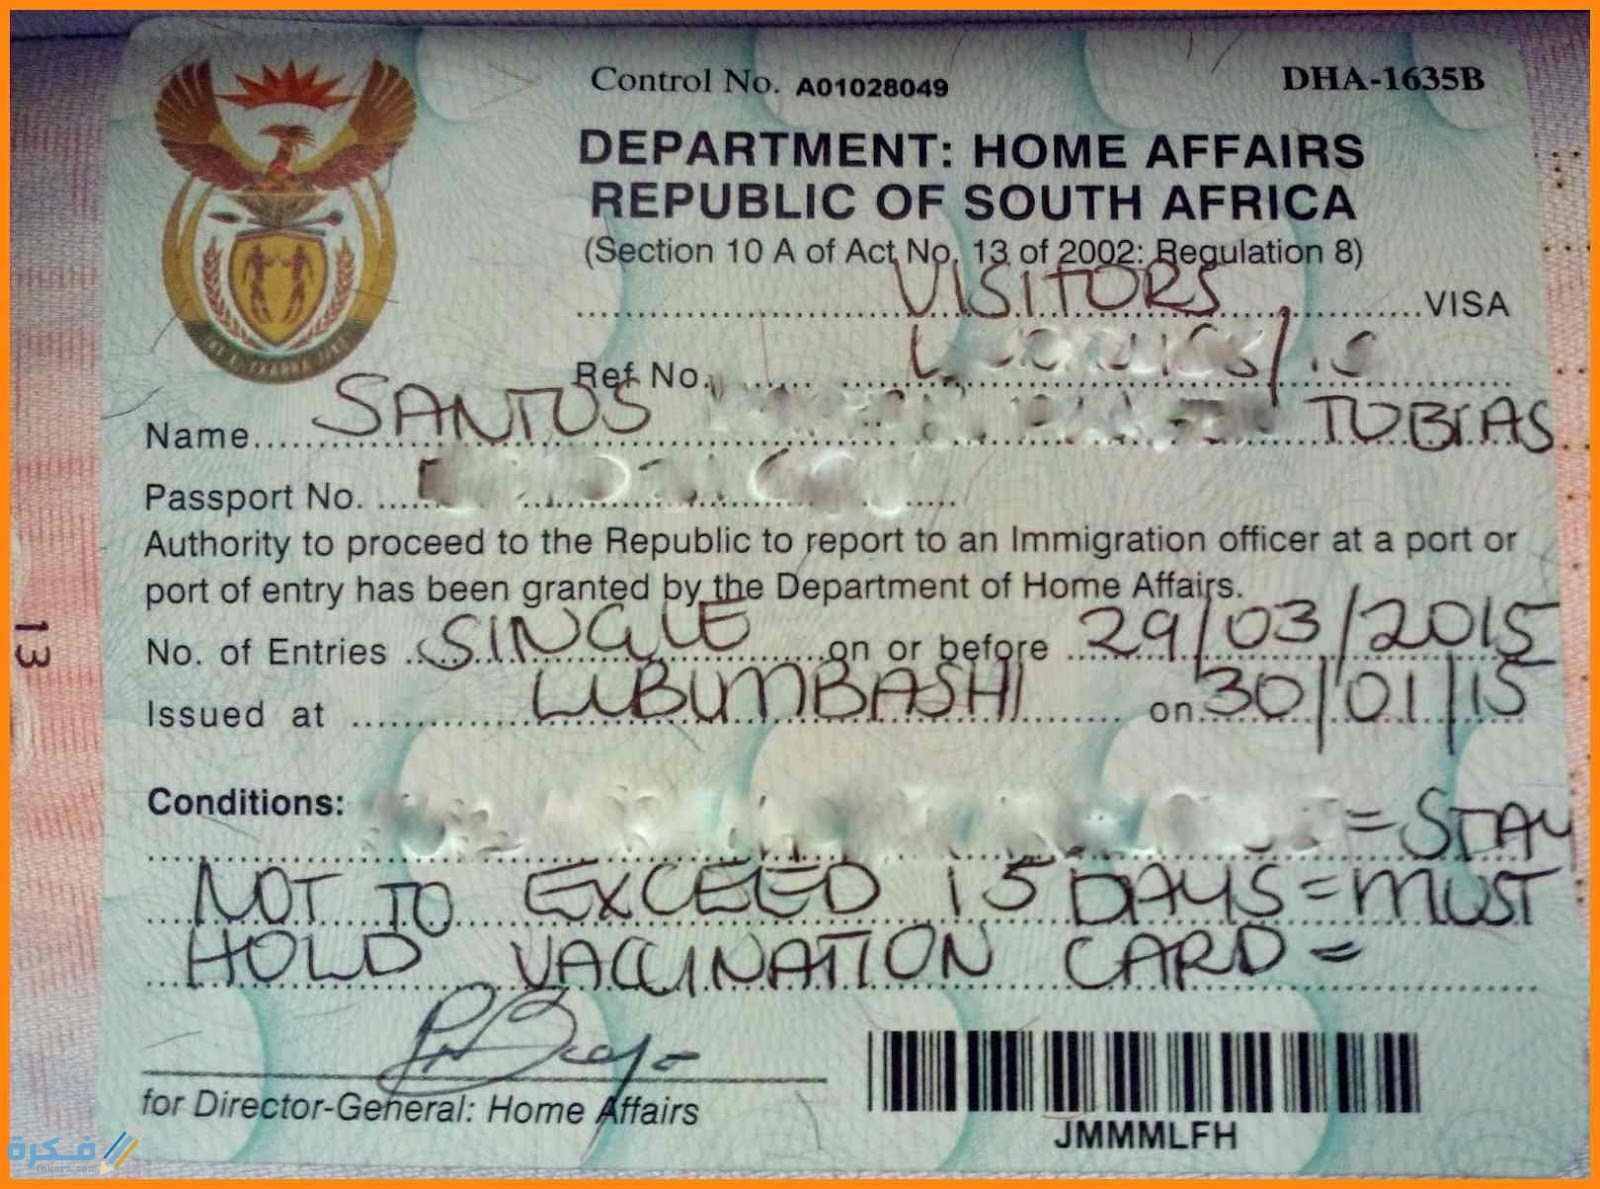 Control No. A01028049
DHA-1635B
DEPARTMENT: HOME AFFAIRS
REPUBLIC OF SOUTH AFRICA
(Section 10 A of Act No. 13 of 2002: Regulation 8)
VISITORS VISA
Ref No.
Name SANTOS TOBIAS
Passport No.
Authority to proceed to the Republic to report to an Immigration officer at a port or
port of entry has been granted by the Department of Home Affairs.
No. of Entries SINGLE on or before 29/03/2015
Issued at LUBUMBASHI on 30/01/15
Conditions: =STAY
NOT TO EXCEED 15 DAYS=MUST
HOLD VACCINATION CARD=
for Director-General: Home Affairs
JMMMLFH
13
فكرة